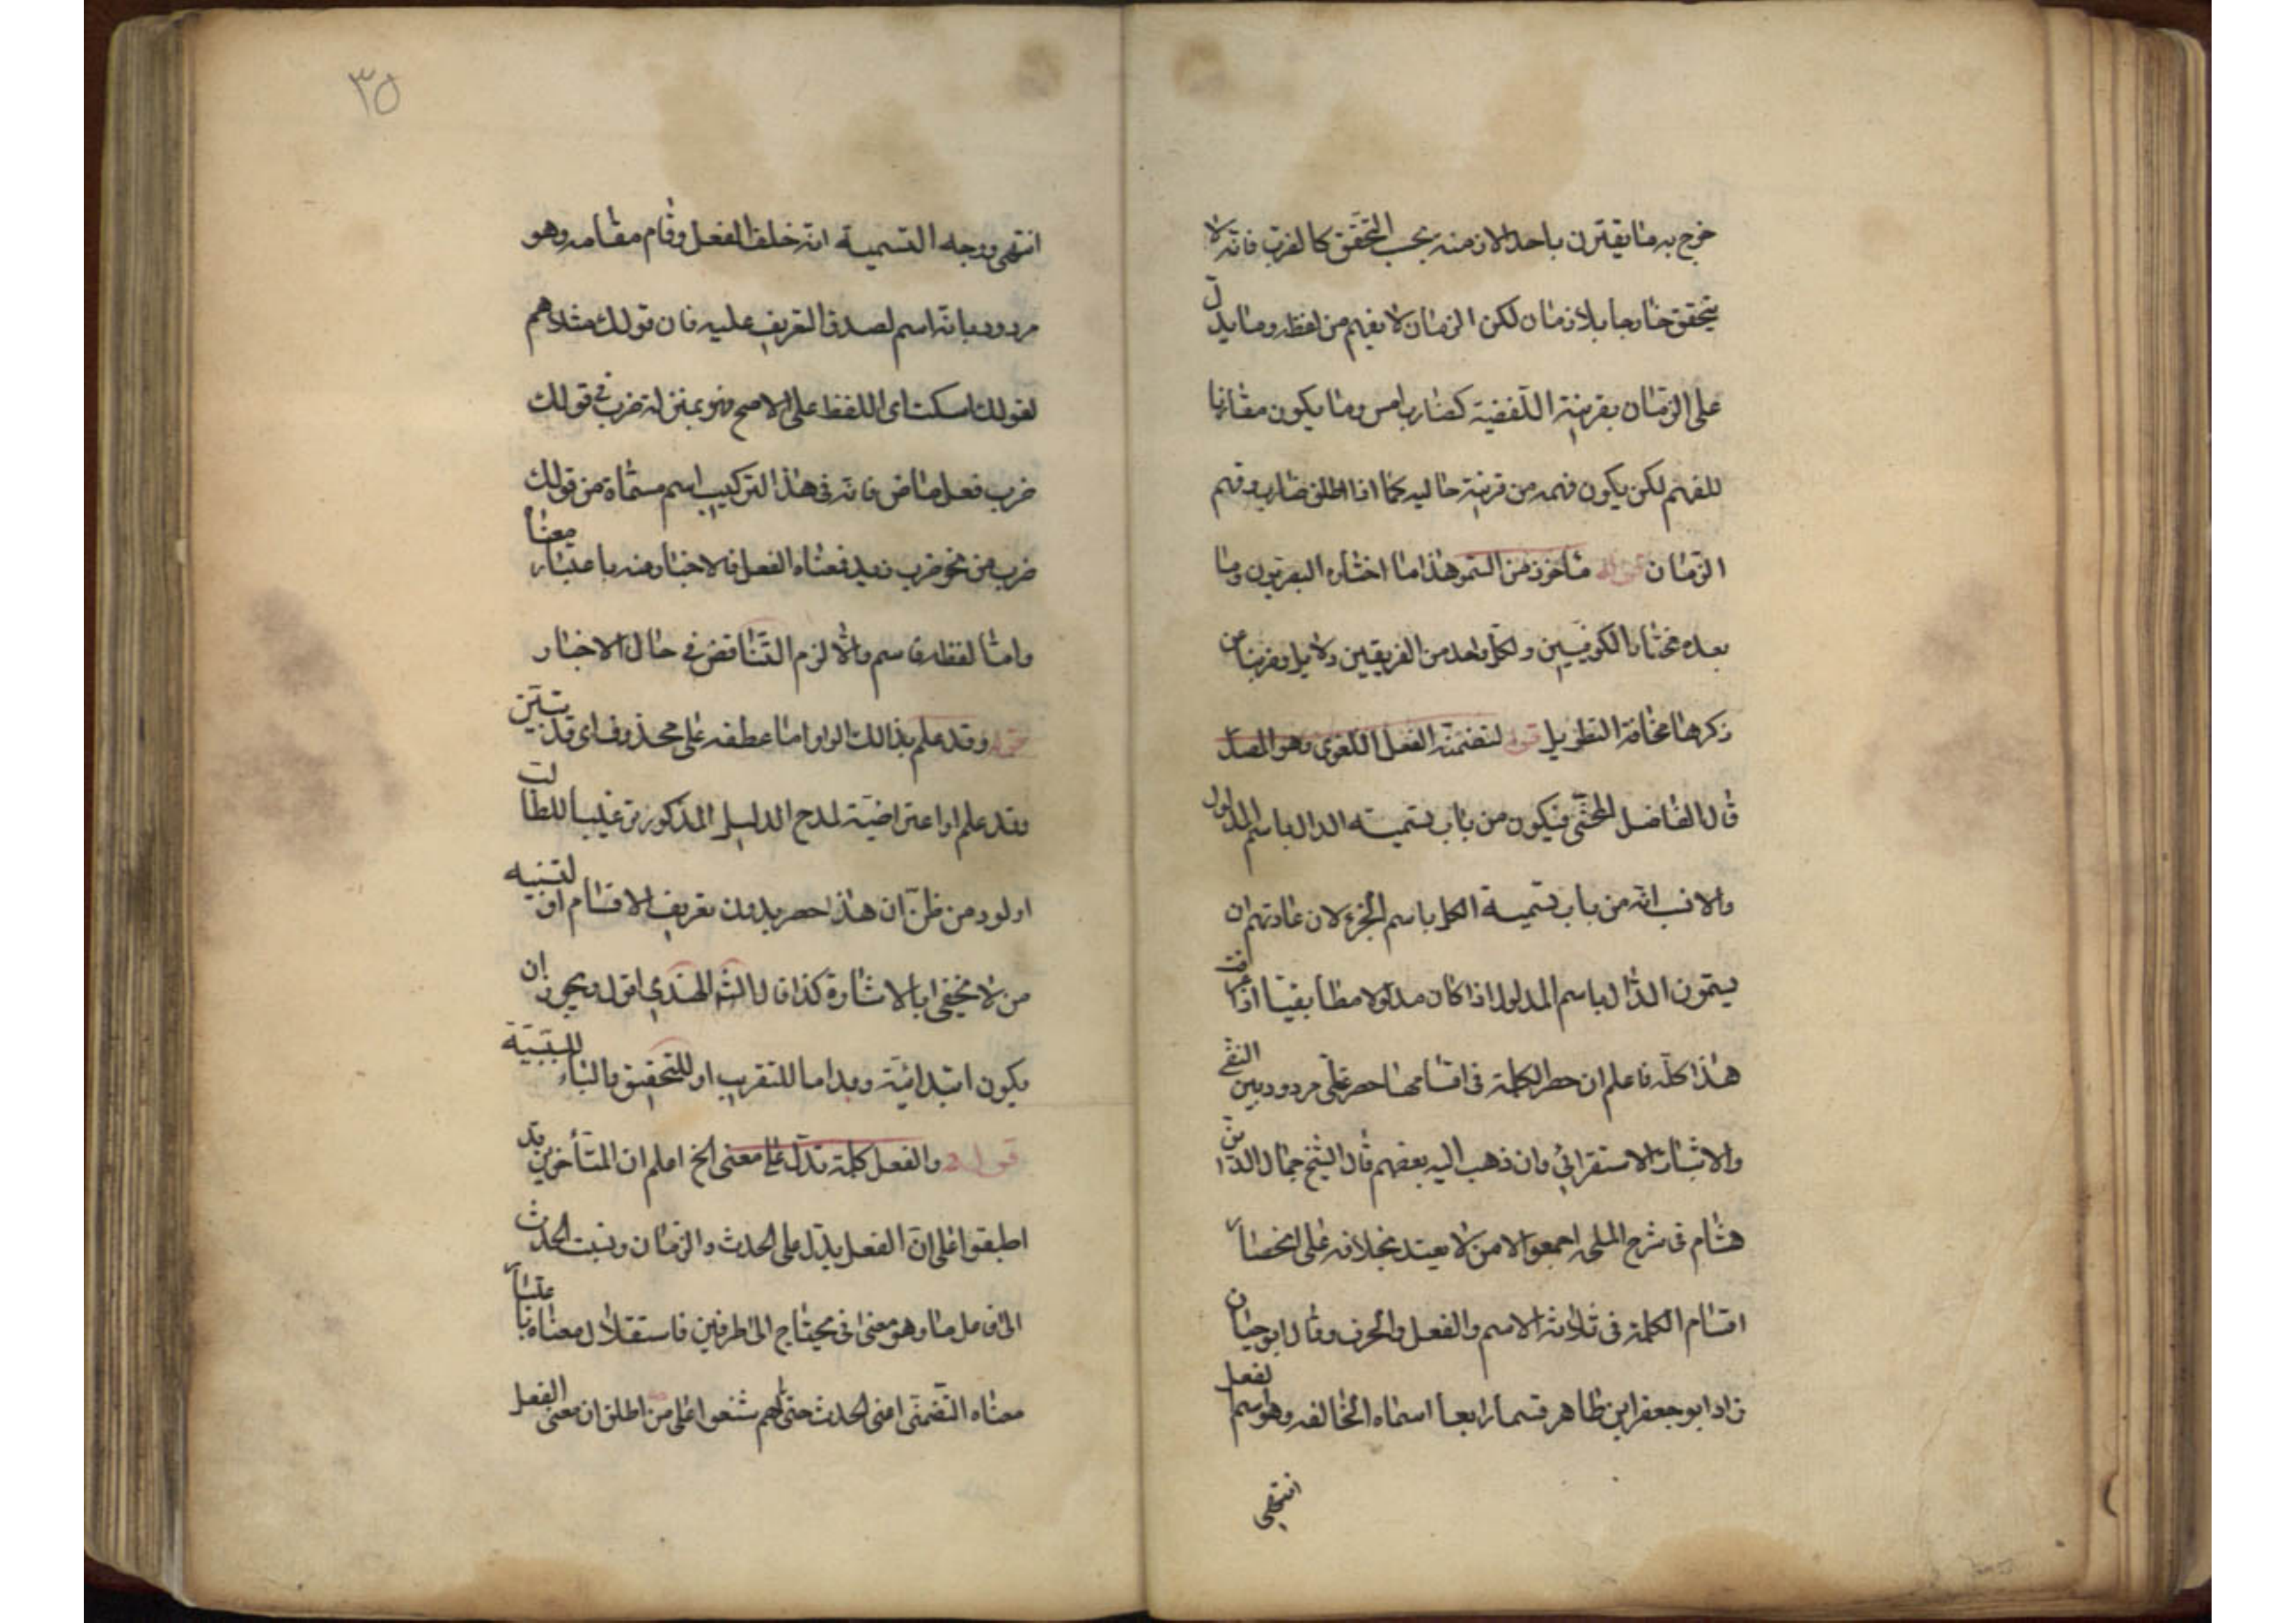 خرج به ما يقترن باحد الازمنه بحسب التحقق كالضرب فانه لا
يتحقق خارجا بلا زمان لكن الزمان لا يفهم من لفظه وما يدل
على الزمان بقرينة اللفضية كضارب امس وما يكون مقارنا
للفهم لكن يكون فهمه من قرينة حاليه كما اذا اطلق ضارب وفهم
الزمان قوله مأخوذ من السمو هذا ما اختاره البصريون وما
بعده مختار الكوفيين ولكل واحد من الفريقين دلايل وضربنا عن
ذكرها مخافة التطويل قوله لتضمنه الفعل اللغوي وهو المصدر
قال الفاضل المحشى فيكون من باب تسمية الدال باسم المدلول
والانسب انه من باب تسمية الكل باسم الجزء لان عادتهم ان
يسمون الدال باسم المدلول اذا كان مدلولا مطابقيا اذا عرفت
هذا كله فاعلم ان حصر الكلمة فى اقسامها حصر عقلى مردود بين النفى
والاثبات لا استقرائي وان ذهب اليه بعضهم قال الشيخ جمال الدين
هشام فى شرح الملحه اجمعوا الا من لا يعتد بخلافه على انحصار
اقسام الكلمة فى ثلاثة الاسم والفعل والحرف وقال ابو حيان
زاد ابو جعفر ابن طاهر قسما رابعا اسماه الخالفه وهو اسم الفعل
انتهى
٣٥
انتهى ووجه التسمية انه خلف الفعل وقام مقامه وهو
مردود بانه اسم لصدق التعريف عليه فان قولك مثلا هم
لقولك اسكت اى اللفظ على الاصح فهو بمنزلة ضرب فى قولك
ضرب فعل ماض فانه فى هذا التركيب اسم مسماة من قولك
ضرب من نحو ضرب زيد فمعناه الفعل فالاخبار منه باعتبار معنا
واما لفظه فاسم والا لزم التناقض فى حال الاخبار
قوله وقد علم بذالك الواو اما عطفه على محذوف اى قد تبين
وقد علم او اعتراضية لمدح الدليل المذكور ترغيبا للطالب
او لود من ظن ان هذا حصر بدون تعريف الاقسام او لتنبيه
من لا يخفى بالاشارة كذا قال الشم الهندي اقول ويجوز ان
يكون ابتدائية وقد اما للتقريب او للتحقيق والباء للسببية
قوله والفعل كلمة تدل على معنى الخ اعلم ان المتأخرين قد
اطبقوا على ان الفعل يدل على الحدث والزمان ونسبت الحدث
الى فاعل ما وهو معنى فى يحتاج الى طرفين فاستقلال معناه باعتبار
معناه التضمنى اعنى الحدث حتى انهم شنعوا على من اطلق ان معنى الفعل